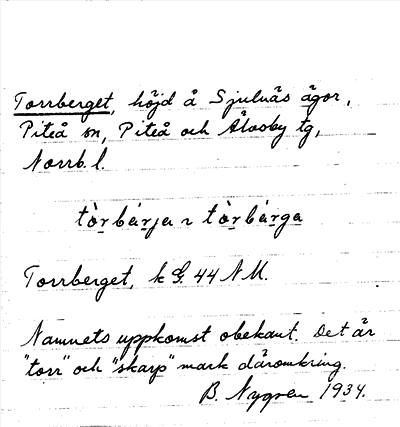 Torrberget, höjd å Sjulnäs ägor,
Piteå sn, Piteå och Älvsby tg,
Norrb. l.
tòrbárja ~ tòrbárga
Torrberget, k G. 44 NM.
Namnets uppkomst obekant. Det är
"torr" och "skarp" mark däromkring.
B. Nygren 1934.